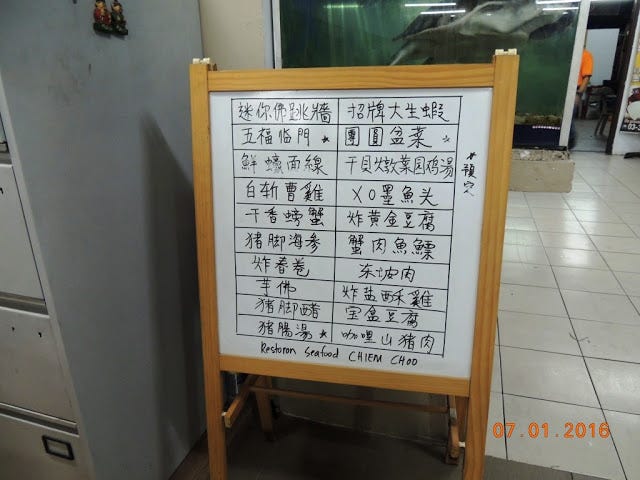 迷你佛跳牆 招牌大生蝦
五福临門★ 團圓盆菜☆
鮮蠔面線 干貝炖菜园鸡湯
白斩曹雞 XO墨魚头
干香螃蟹 炸黄金豆腐
猪脚海参 蟹肉魚鰾
炸春卷 东坡肉
芋佛 炸盐酥雞
猪脚醋 宝盆豆腐
猪腸湯★ 咖哩山猪肉
*預定
Restoran Seafood CHIEM CHOO
07.01.2016